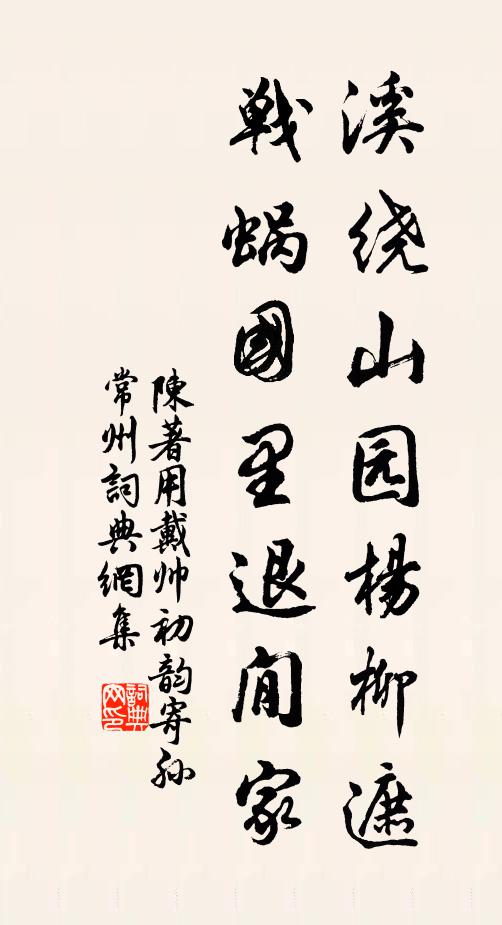 溪绕山园杨柳遮
戦蜗國里退閒家
陳著用戴帅初韵寄孙
常州詞典網集
詞典网印